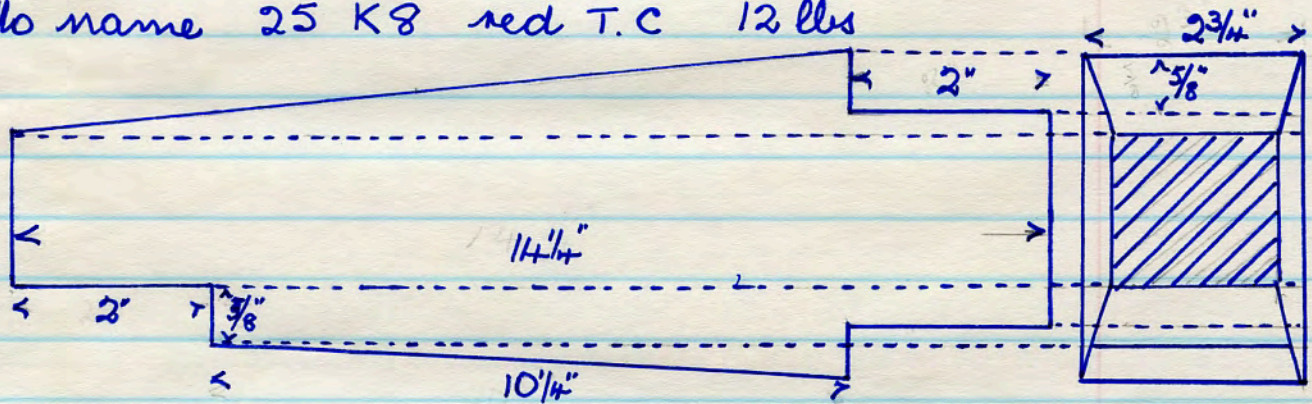 No name 25 K8 red T.C 12 lbs
2 3/4"
5/8"
2"
14 1/4"
2"
5/8"
10 1/4"